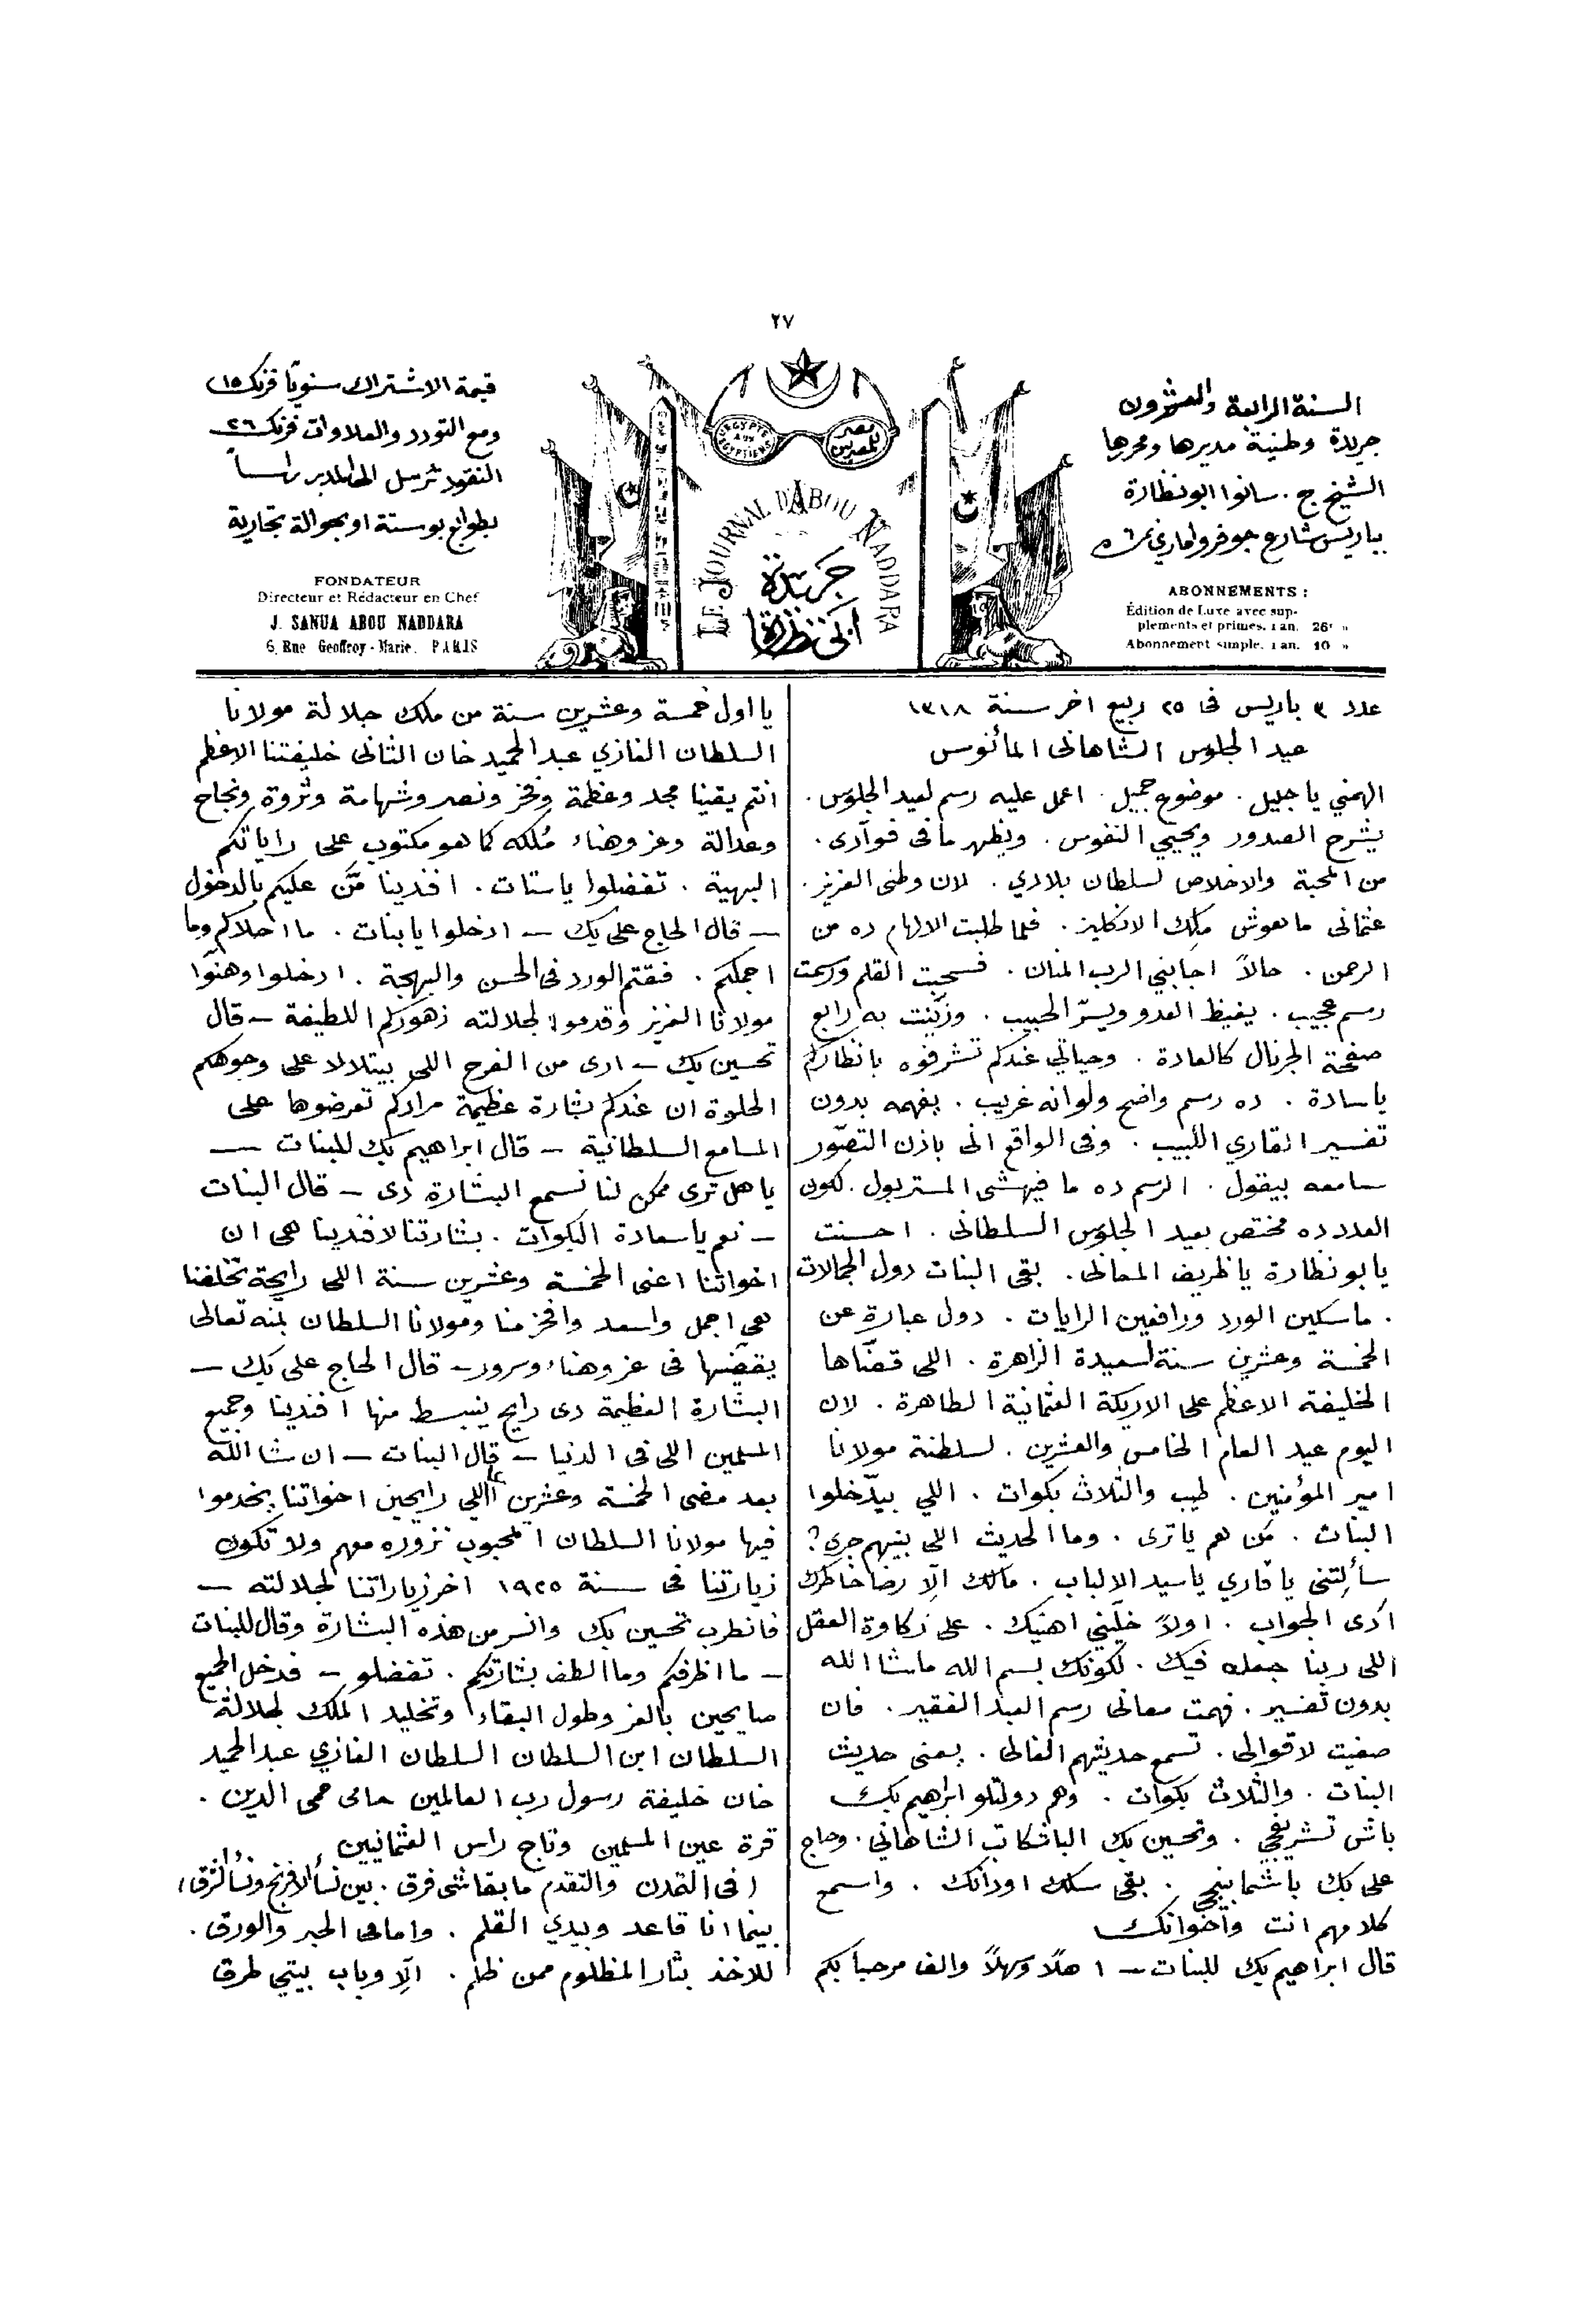 ٢٧
السنة الرابعة والعشرون
جريدة وطنية مديرها ومحررها
الشيخ ج. سانوا ابو نظارة
بباريس شارع جوفروا ماري نمرة
ABONNEMENTS :
Édition de Luxe avec sup-
pléments et primes. 1 an. 26 "
Abonnement simple. 1 an. 10 "
ÉGYPTE AUX ÉGYPTIENS
مصر للمصريين
LE JOURNAL D'ABOU NADDARA
جريدة
ابى نظارة
قيمة الاشتراك سنويا فرنك ١٥
ومع التورد والعلاوات فرنك ٢٦
النقود ترسل الى المدير راساً
بطوابع بوستة او بحوالة تجارية
FONDATEUR
Directeur et Rédacteur en Chef
J. SANUA ABOU NADDARA
6, Rue Geoffroy-Marie. PARIS
عدد ٣ باريس فى ٢٥ ربيع اخر سنة ١٣١٨
عيد الجلوس الشاهانى المأنوس
الهمني يا جليل . موضوع جميل . اعمل عليه رسم لعيد الجلوس .
يشرح الصدور ويحيي النفوس . ويظهر ما فى فوآدى .
من المحبة والاخلاص لسلطان بلادي . لان وطنى العزيز .
عثمانى ماهوش ملك الانكليز . فلما طلبت الالهام ده من
الرحمن . حالاً اجابني الرب المنان . فسحبت القلم ورسمت
رسم عجيب . يغيظ العدو ويسرّ الحبيب . وزيّنت به رابع
صفحة الجرنال كالعادة . وحياتي عندكم تشرفوه بانظاركم
يا سادة . ده رسم واضح ولو انه غريب . يفهمه بدون
تفسير القاري اللبيب . وفى الواقع انى باذن التصوّر
سامعه بيقول . الرسم ده ما فيهشى المستر بول . لكون
العدد ده مختص بعيد الجلوس السلطانى . احسنت
يا بو نظارة يا ظريف المعانى . بقى البنات دول الجمالات
. ماسكين الورد ورافعين الرايات . دول عبارة عن
الخمسة وعشرين سنة السعيدة الزاهرة . اللى قضّاها
الخليفة الاعظم على الاريكة العثمانية الطاهرة . لان
اليوم عيد العام الخامس والعشرين . لسلطنة مولانا
امير المؤمنين . طيب والثلاث بكوات . اللي بيدّخلوا
البنات . مَن هم يا ترى . وما الحديث اللى بينهم جرى؟
سألتنى يا قاري يا سيد الالباب . مالك الّا رضا خاطرك
ادى الجواب . اولاً خلّيني اهنيك . على زكاوة العقل
اللى ربنا جعله فيك . لكونك بسم الله ماشا الله
بدون تفسير . فهمت معانى رسم العبد الفقير . فان
صغيت لاقوالى . تسمع حديثهم الغالى . يعنى حديث
البنات . والثلاث بكوات . وهم دولتلو ابراهيم بك
باش تشريفجي . وتحسين بك الباشكاتب الشاهاني . وحاج
على بك باشمابينجي . بقى سلك اودانك . واسمع
كلامهم انت وآخوانك
قال ابراهيم بك للبنات — اهلاً وسهلاً والف مرحبا بكم
يا اول خمسة وعشرين سنة من ملك جلالة مولانا
السلطان الغازي عبد الحميد خان الثانى خليفتنا الاعظم
انتم يقينا مجد وعظمة وفخر ونصر وشهامة وثروة ونجاح
وعدالة وعز وهناء مُلكه كما هو مكتوب على راياتكم
البهية . تفضلوا يا ستات . افندينا مَنّ عليكم بالدخول
— قال الحاج على بك — ادخلوا يا بنات . ما احلاكم وما
اجملكم . فقتم الورد فى الحسن والبهجة . ادخلوا وهنّوا
مولانا العزيز وقدموا لجلالته زهوركم اللطيفة — قال
تحسين بك — ارى من الفرح اللى بيتلالا على وجوهكم
الحلوة ان عندكم بشارة عظيمة مرادكم تعرضوها على
المسامع السلطانية — قال ابراهيم بك للبنات —
يا هل ترى ممكن لنا نسمع البشارة دى — قال البنات
— نعم يا سعادة البكوات . بشارتنا لافندينا هى ان
اخواتنا اعنى الخمسة وعشرين سنة اللى رايحة تخلفنا
هى اجمل واسعد وافخر منا ومولانا السلطان بمنه تعالى
يقضّيها فى عز وهناء وسرور — قال الحاج على بك —
البشارة العظيمة دى رايح ينبسط منها افندينا وجميع
المسلمين اللى فى الدنيا — قال البنات — ان شا الله
بعد مضى الخمسة وعشرين عاما اللي رايحين اخواتنا يخدموا
فيها مولانا السلطان المحبوب نزوره معهم ولا تكون
زيارتنا فى سنة ١٩٢٥ اخر زياراتنا لجلالته —
فانطرب تحسين بك وانسر من هذه البشارة وقال للبنات
— ما اظرفكم وما الطف بشارتكم . تفضلو — فدخل الجميع
صايحين بالعز وطول البقاء وتخليد الملك لجلالة
السلطان ابن السلطان السلطان الغازي عبد الحميد
خان خليفة رسول رب العالمين حامى حمى الدين .
قرة عين المسلمين وتاج راس العثمانيين
(فى التمدن والتقدم ما بقاشى فرق . بين نسأ الافرنج ونسأ الشرق)
بينما انا قاعد وبيدي القلم . وامامى الحبر والورق .
للاخذ بثار المظلوم ممن ظلم . الّا وباب بيتي طرق